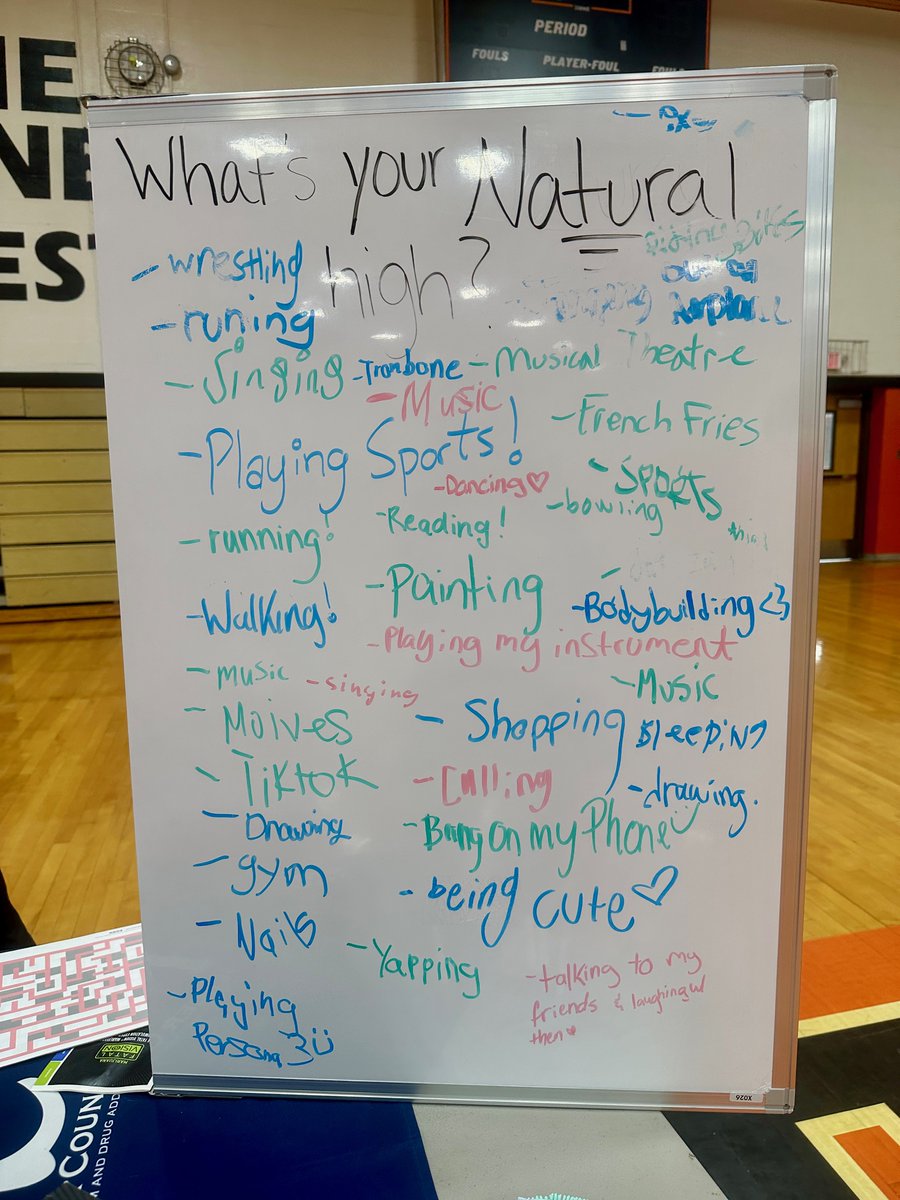 PERIOD
FOULS
PLAYER-FOUL
What's your Natural
high?
-wrestling
-runing
-Singing
-Trombone
-Musical Theatre
-Music
-French Fries
-Playing Sports!
-Dancing♡
-Sports
-bowling
-Reading!
-running!
-Painting
-Walking!
-Bodybuilding<3
-Playing my instrument
-music
-singing
-Music
-Moives
-Shopping
Sleeping
-Tiktok
-drawing.
-Drawing
-gym
-being cute♡
-Yapping
-talking to my
friends & laughing w/
-Playing
Persona 3
FATAL
VISION
COUN
M AND DRUG ADD
X026